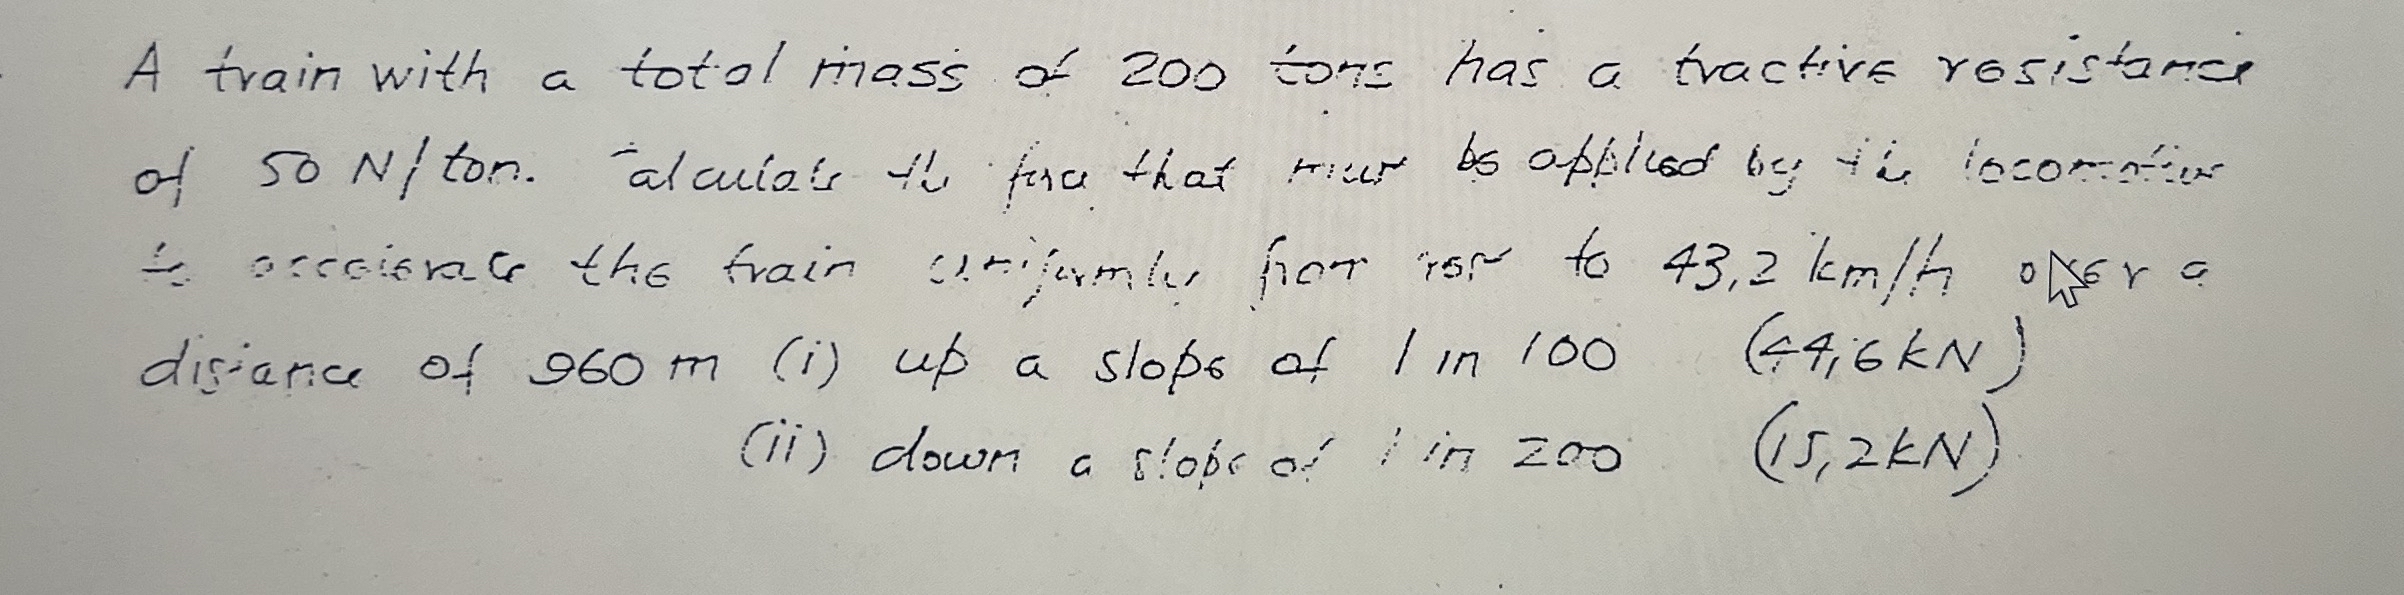 A train with a total mass of 200 tons has a tractive resistance
of 50 N/ton. Calculate the force that must be applied by the locomotive
to accelerate the train uniformly from rest to 43,2 km/h over a
distance of 960 m (i) up a slope of 1 in 100 (44,6 kN)
(ii) down a slope of 1 in 200 (15,2 kN)